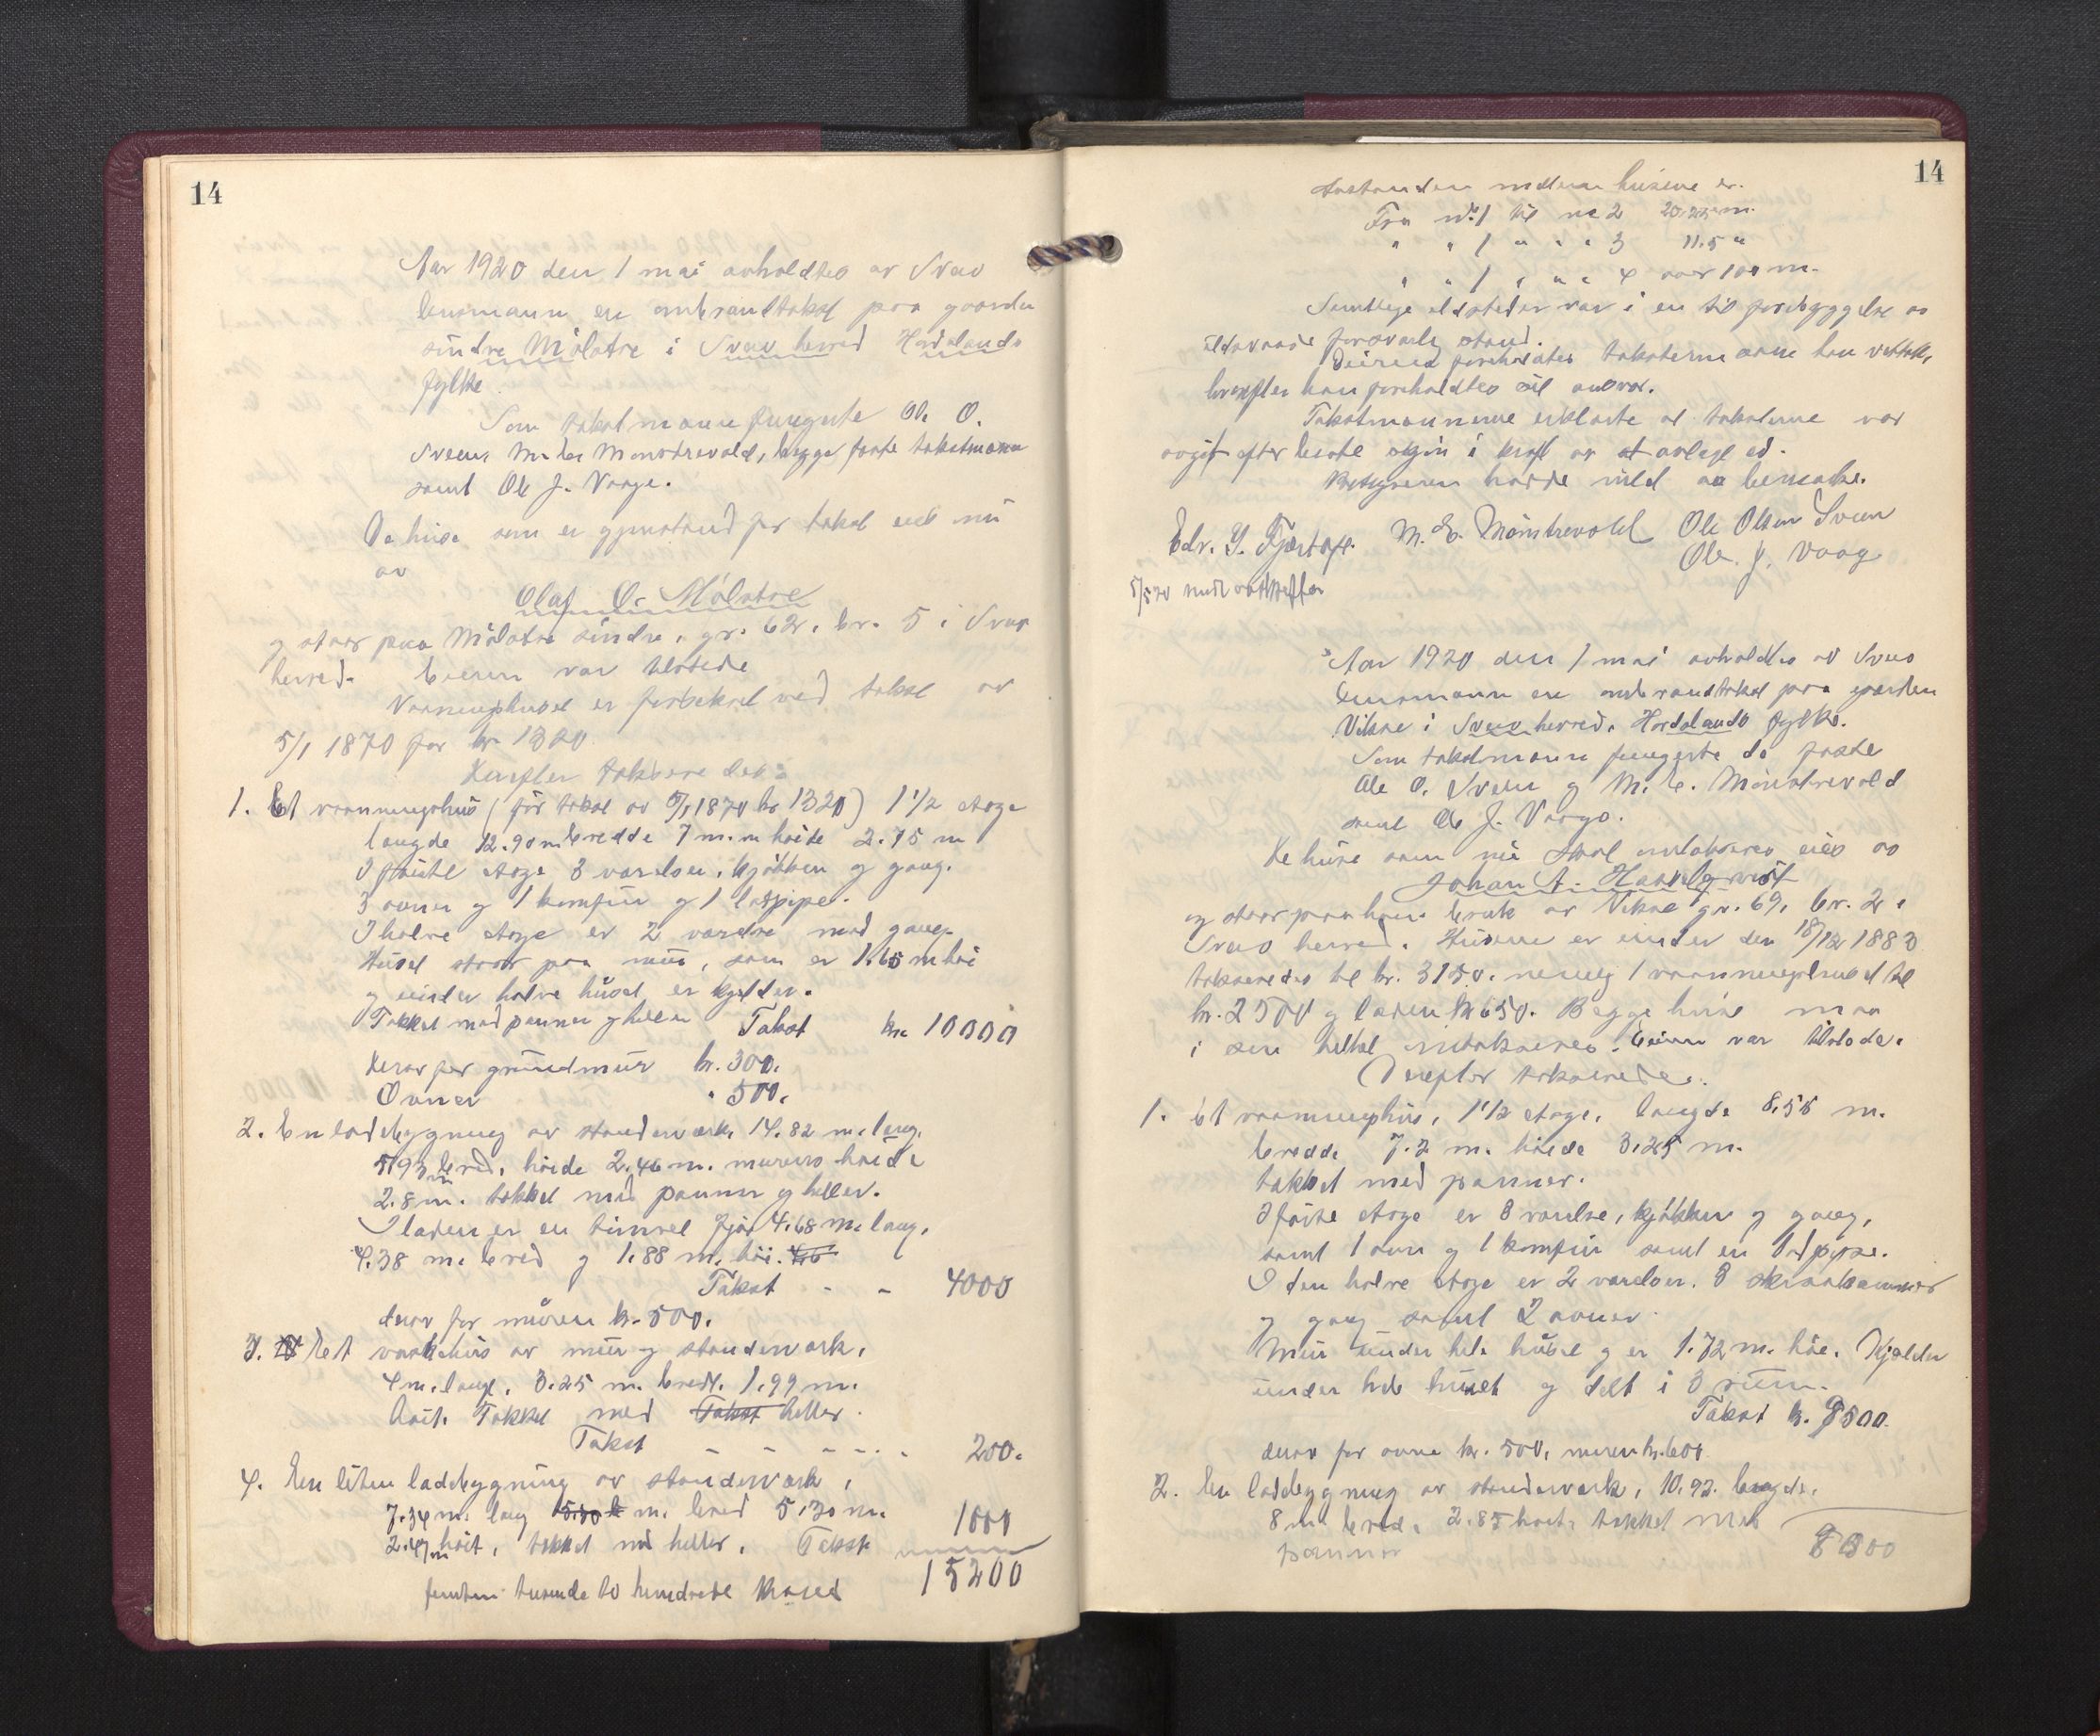 14
Aar 1920 den 1 mai avholdtes av Sveo
lensmann en ombrandtakst paa gaarden
indre Mölstre i Sveo herred Hordalands
fylke.
Som takstmenn fungerte Ole O.
Sveen, M. Er. Mönstrevold, begge faste takstmenn
samt Ole J. Vaage.
De huse som er gjenstand for takst eies nu
av
Olaf O. Mölstre
og staar paa Mölstre indre, gr. 62, br. 5 i Sveo
herred. Eieren var tilstede
Vaaningshuset er forsikret ved takst av
5/1 1870 for kr 1320
Herefter takseredes:
1. Et vaaningshus (för takst av 5/1 1870 kr 1320) 1 1/2 etage
længde 12.90 m bredde 7 m. m höide 2.75 m
I förste etage 3 værelser, kjökken og gang.
3 ovner og 1 komfür og 1 löspipe.
I halve etage er 2 værelse med gang.
Huset staar paa mur, som er 1.65 m höi
og under halve huset er kjelder.
Tækket med panner og heller Takst kr. 10000
Herav for grundmur kr. 300.
Ovner " 500.
2. En ladebygning av stenderverk, 14.82 m. lang,
5.93 m bred, höide 2.46 m. murens höide
2.8 m. tækket med panner og heller.
I laden er en timret fjös 4.68 m. lang,
4.38 m. bred og 1.88 m. höi.
Takst - - 4000
derav for muren kr. 500.
3. Et vaskehus av mur og stenderverk,
4 m. langt, 3.25 m. bredt, 1.99 m.
höit. Tækket med Takst heller.
Takst - - - - - 200.
4. En liten ladebygning av stenderverk,
7.34 m. lang 5.30 m. bred 5.30 m.
2.47 m höit, tækket med heller. Takst 1000
femten tusende to hundrede kroner 15200
14
Avstanden mellem husene er.
Fra No. 1 til no 2 20.25 m.
" " 1 " " " 3 11.5 "
" " 1 " " " 4 over 100 m.
Samtlige ildsteder var i en til forebyggelse av
ildsvaade forsvarlig stand.
Eieren foreholdtes taksterne som han vedtok,
hvorefter han foreholdtes sit ansvar.
Takstmennene erklærte at taksterne var
avgit efter beste skjön i kraft av at avlagt ed.
Bestyreren hadde intet at bemerke.
Edv. Y. Fjærtoft. M. E. Mönstrevold Ole Olsen Sveen
Ole. J. Vaag
5/5 20
Aar 1920 den 1 mai avholdtes av Sveo
lensmann en ombrandtakst paa gaarden
Vikse i Sveo herred, Hordalands fylke.
Som takstmenn fungerte de faste
Ole O. Sveen og M. E. Mönstrevold
samt Ole J. Vaage.
De huse som nu skal omtakseres eies av
Johan A. Hasselqvist
og staar paa hans bruk av Vikse gr. 69, br. 2 i
Sveo herred. Husene er under den 18/12 1883
takseredes til kr. 3150. nemlig 1 vaaningshuset til
kr. 2500 og laden kr 650. Begge huse maa
i sin helhet omtakseres. Eieren var tilstede.
Derefter takseredes.
1. Et vaaningshus, 1 1/2 etage, længde 8,58 m.
bredde 7.2 m. höide 3,25 m.
tækket med panner.
I förste etage er 3 værelse, kjökken og gang,
samt 1 ovn og 1 komfür samt en
I den halve etage er 2 værelser, 3 skraakammer
og gang samt 2 ovner.
Mur under hele huset og er 1.72 m. höi. Kjelder
under hele huset og delt i 3 rum.
Takst kr. 8500.
derav for ovne kr. 500, muren kr. 600
2. En ladebygning av stenderverk, 10.92. længde,
8 m bred. 2.85 höit, tækket med
panner 8500